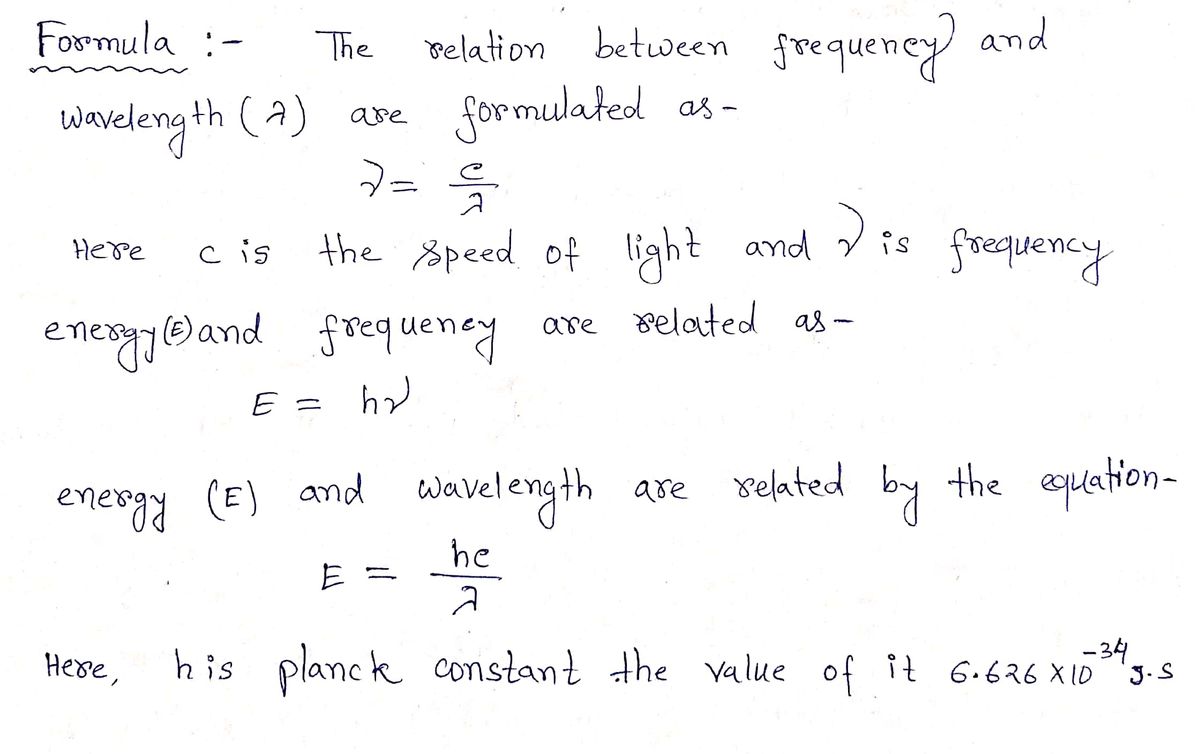 Formula :- The relation between frequency and
wavelength (λ) are formulated as -
ν = c/λ
Here c is the speed of light and ν is frequency
energy (E) and frequency are related as -
E = hν
energy (E) and wavelength are related by the equation -
E = hc/λ
Here, h is planck constant the value of it 6.626 X 10⁻³⁴ J.s